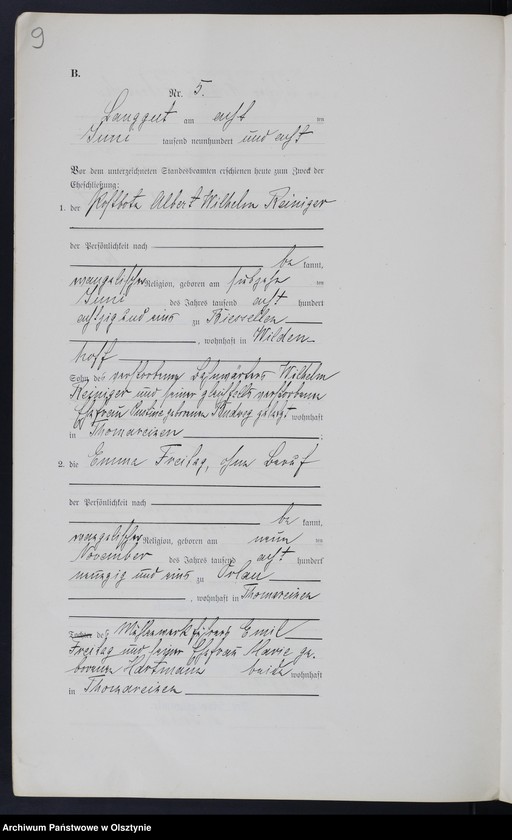 9
B.
Nr. 5.
Langgut am acht ten
Juni tausend neunhundert und acht
Vor dem unterzeichneten Standesbeamten erschienen heute zum Zweck der
Eheschließung:
1. der Postbote Albert Wilhelm Reiniger
der Persönlichkeit nach
be kannt,
evangelischer Religion, geboren am ten
Juni des Jahres tausend acht hundert
achtzig und eins zu Biessellen
, wohnhaft in Wilden-
hoff
Sohn des verstorbenen Bahnwärters Wilhelm
Reiniger und seiner gleichfalls verstorbenen
Ehefrau geborenen zuletzt wohnhaft
in Thomareinen ;
2. die Emma Freitag, ohne Beruf
der Persönlichkeit nach
be kannt,
evangelischer Religion, geboren am neun ten
November des Jahres tausend acht hundert
neunzig und eins zu Orlau
, wohnhaft in Thomareinen
Tochter des Mühlenwerkführers Emil
Freitag und seiner Ehefrau Marie ge-
borenen Hartmann beide wohnhaft
in Thomareinen
Archiwum Państwowe w Olsztynie